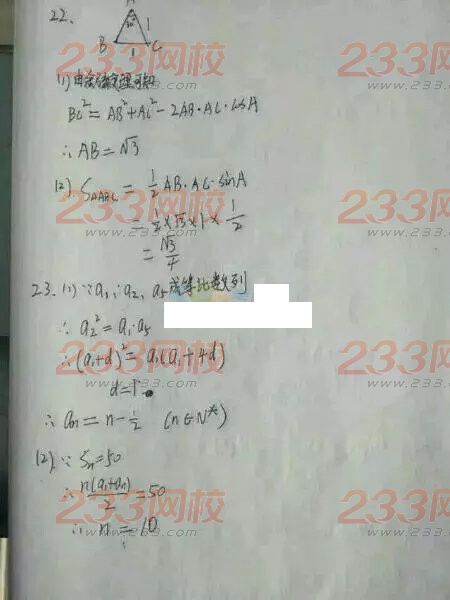 22.
A
30°
B
1
1
C
(1) 由余弦定理可知
BC² = AB² + AC² - 2AB·AC·cosA
∴ AB = √3
(2). S△ABC = 1/2 AB·AC·sinA
= 1/2 × √3 × 1 × 1/2
= √3/4
23. (1) ∵ a₁, a₂, a₅成等比数列
∴ a₂² = a₁·a₅
∴ (a₁+d)² = a₁(a₁+4d)
d=1
∴ aₙ = n - 1/2 (n∈N*)
(2) ∵ Sₙ=50
∴ n(a₁+aₙ)/2 = 50
∴ n = 10
233网校
233网校
233网校
233网校
233网校
233网校
233网校
233网校